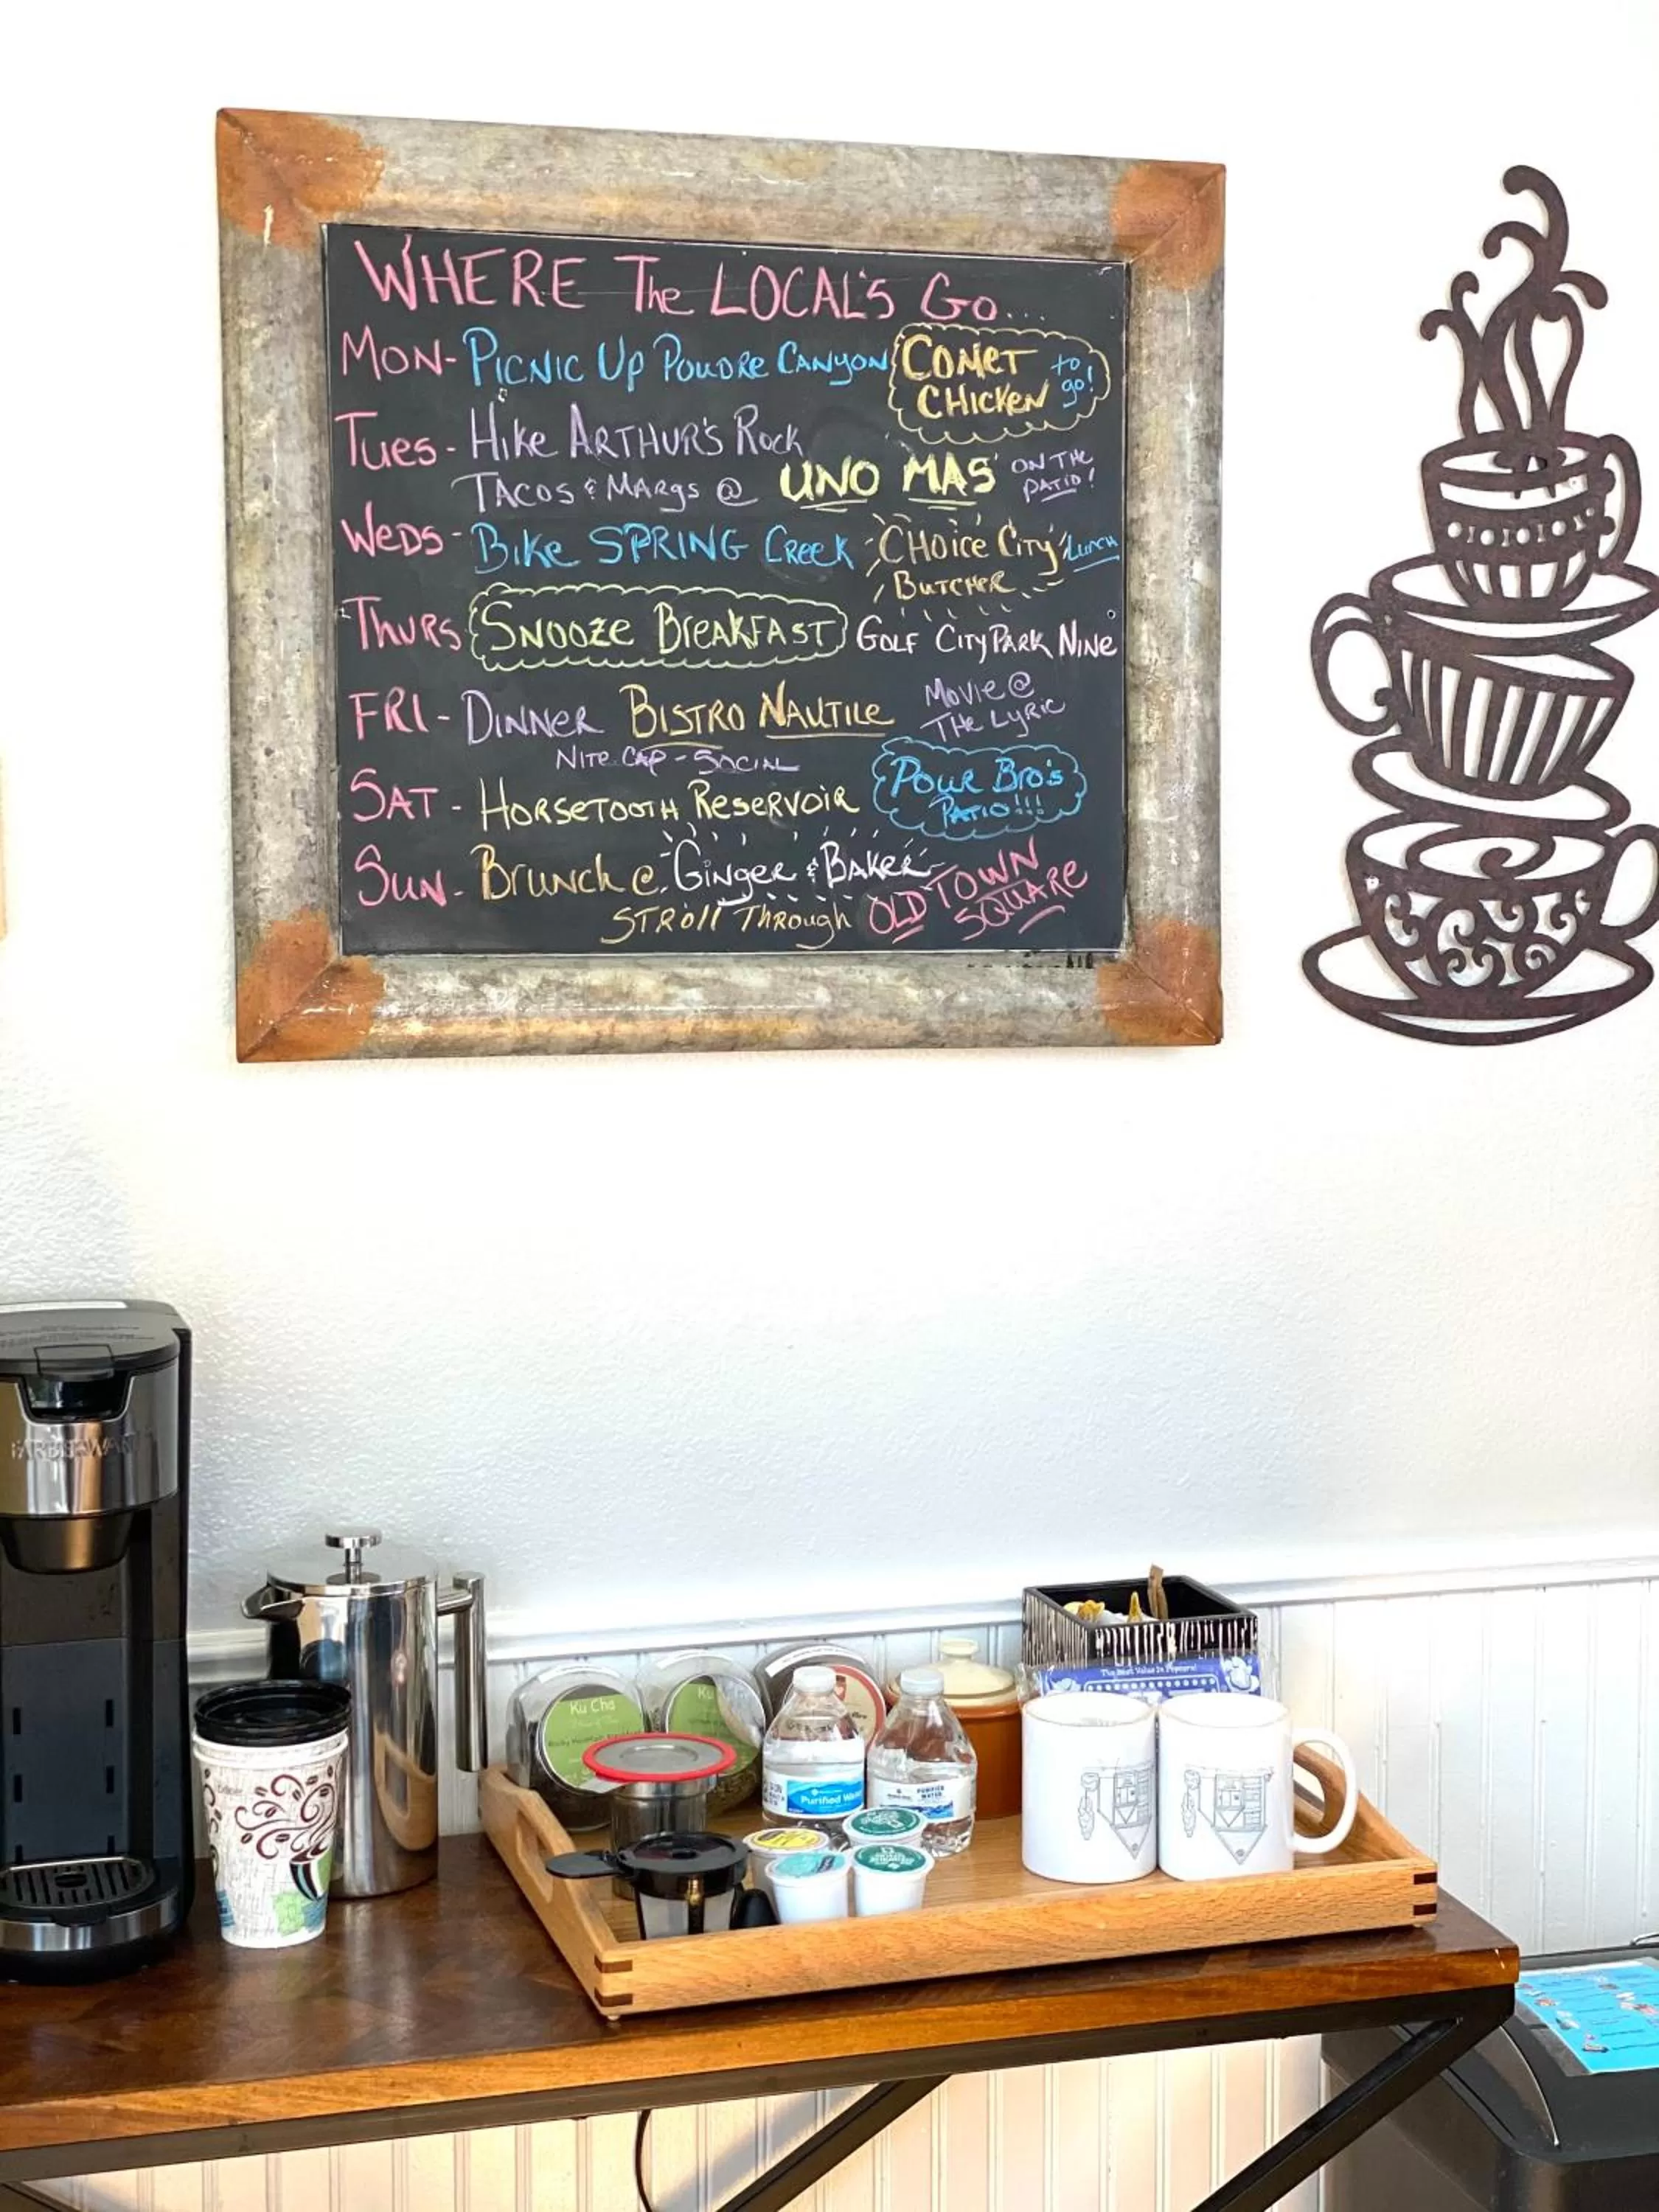 WHERE The LOCAL'S Go...
MON- PICNIC UP POUDRE CANYON COMET CHICKEN to go!
Tues- Hike ARTHUR'S Rock
TACOS & MARgs @ UNO MAS ON THE PATIO!
Weds- Bike SPRING Creek CHOice City BUTCHER Lunch
THURS SNOOZE BREAKFAST GOLF CITY PARK NINE
FRI- DINNER BISTRO NAUTILE MOVIE @ THE LYRIC
NITE CAP - SOCIAL
SAT- HORSETOOTH RESERVOIR POUR BRO'S PATIO!!!
SUN- Brunch @ Ginger & BAKER
STROll THROUGH OLD TOWN SQUARE
FARBERWARE
The Best Value In Popcorn!
Ku Cha
Ku
Rocky Mountain
Purified Wa
PURIFIED WATER